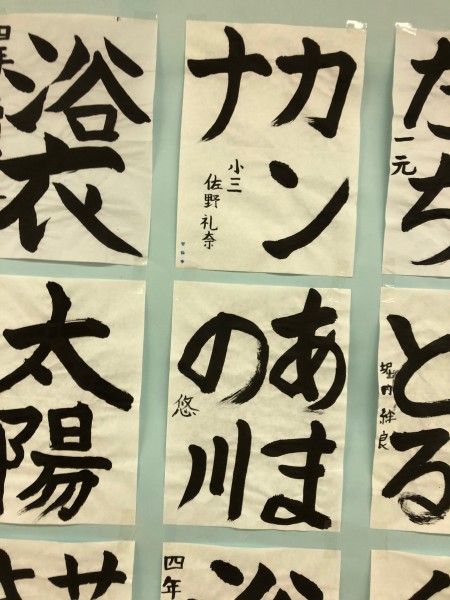 浴衣
四年
カン
ナ
小三
佐野礼奈
たち
一元
太陽
あま
の川
悠
とる
四年